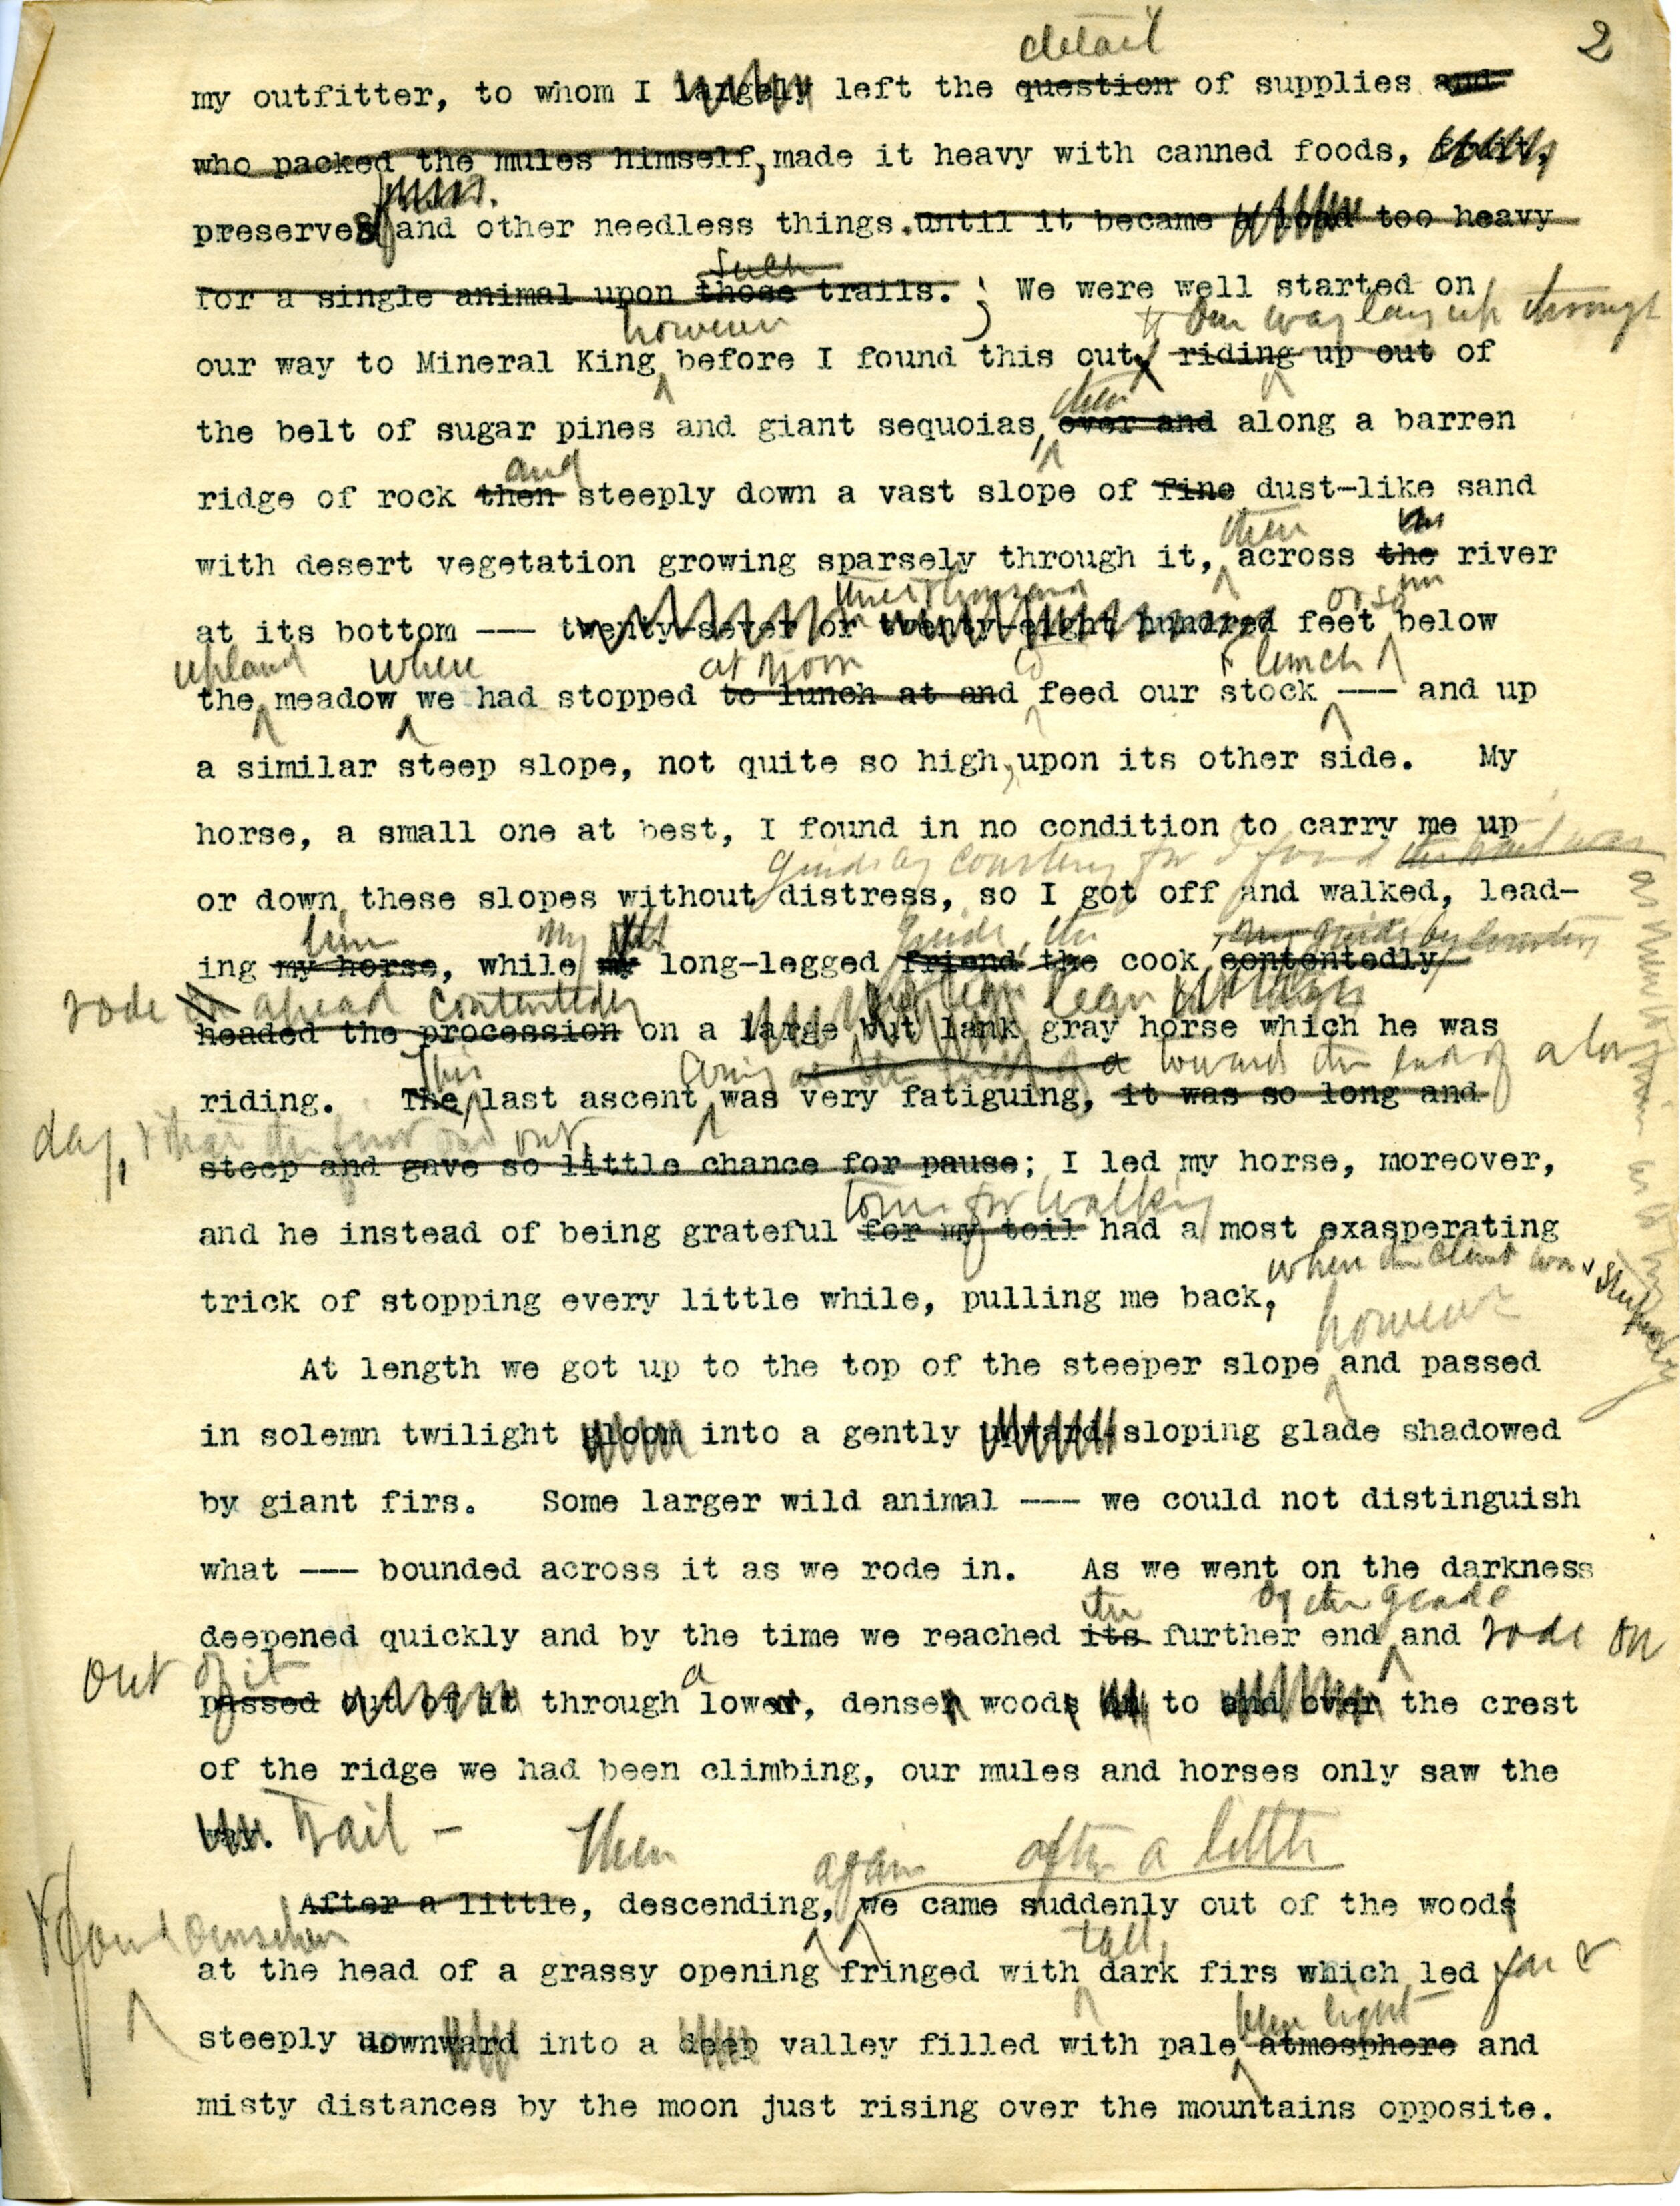 2
detail
my outfitter, to whom I largely left the question of supplies and
who packed the mules himself, made it heavy with canned foods,
preserves and other needless things. until it became a load too heavy
such
for a single animal upon those trails. ; We were well started on
however our way lay up through
our way to Mineral King before I found this out, riding up out of
then
the belt of sugar pines and giant sequoias, over and along a barren
and
ridge of rock then steeply down a vast slope of fine dust-like sand
then
with desert vegetation growing sparsely through it, across the river
three thousand or so
at its bottom --- twenty-seven or twenty-eight hundred feet below
upland where at noon to & lunch
the meadow we had stopped to lunch at and feed our stock --- and up
a similar steep slope, not quite so high, upon its other side. My
horse, a small one at best, I found in no condition to carry me up
guide by courtesy for I found the trail was
or down these slopes without distress, so I got off and walked, lead-
him my guide, the my guide by courtesy
ing my horse, while my long-legged friend the cook contentedly
rode ahead contentedly lean
headed the procession on a large but lank gray horse which he was
This coming towards the end of a long
riding. The last ascent was very fatiguing, it was so long and
day, & that the first one out
steep and gave so little chance for pause; I led my horse, moreover,
to me for walking
and he instead of being grateful for my toil had a most exasperating
when the climb was steepest
trick of stopping every little while, pulling me back,
however
At length we got up to the top of the steeper slope and passed
in solemn twilight gloom into a gently upward sloping glade shadowed
by giant firs. Some larger wild animal --- we could not distinguish
what --- bounded across it as we rode in. As we went on the darkness
the of the glade
deepened quickly and by the time we reached its further end and rode on
out of it a
passed out of it through lower, denser woods on to and over the crest
of the ridge we had been climbing, our mules and horses only saw the
way. Trail -
Then again after a little
After a little, descending, we came suddenly out of the woods
& found ourselves tall,
at the head of a grassy opening fringed with dark firs which led far &
blue light
steeply downward into a deep valley filled with pale atmosphere and
misty distances by the moon just rising over the mountains opposite.